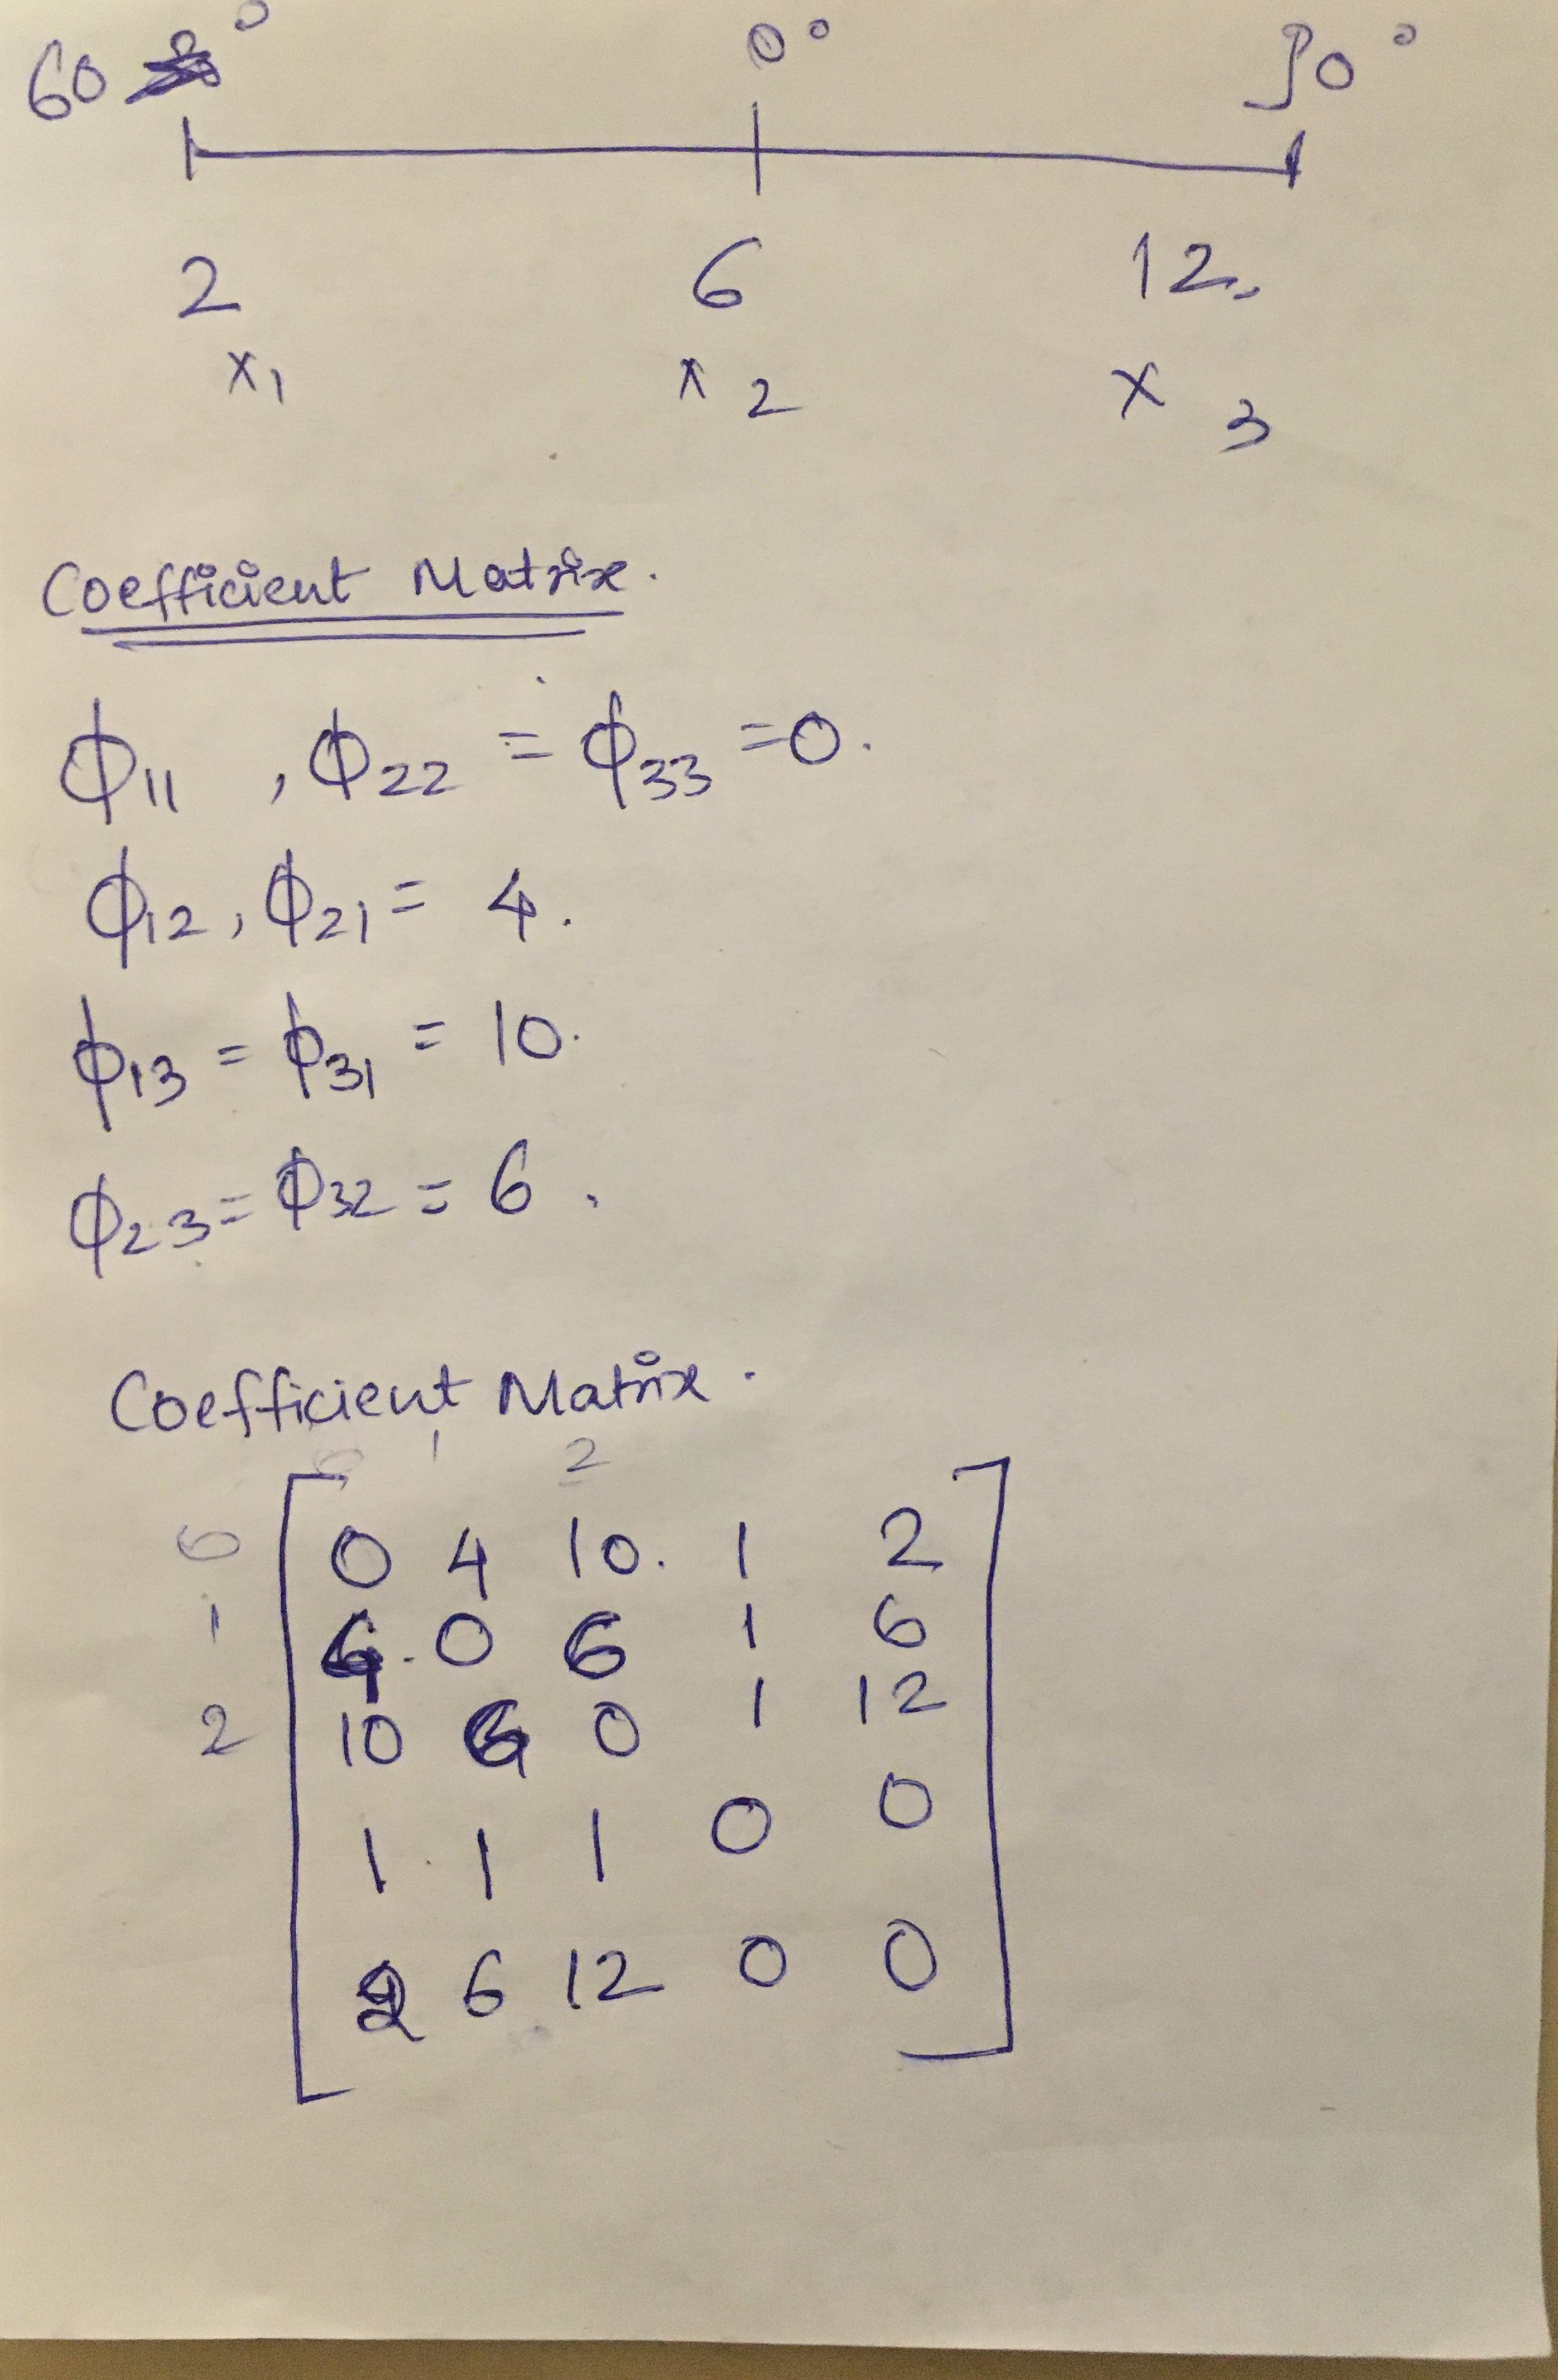 60° 0° 30°
2 6 12.
x₁ x₂ x₃
Coefficient Matrix.
ϕ₁₁ , ϕ₂₂ = ϕ₃₃ = 0.
ϕ₁₂, ϕ₂₁ = 4.
ϕ₁₃ = ϕ₃₁ = 10.
ϕ₂₃ = ϕ₃₂ = 6.
Coefficient Matrix.
0 1 2
0 0 4 10. 1 2
1 4. 0 6 1 6
2 10 6 0 1 12
1 1 1 0 0
2 6 12 0 0